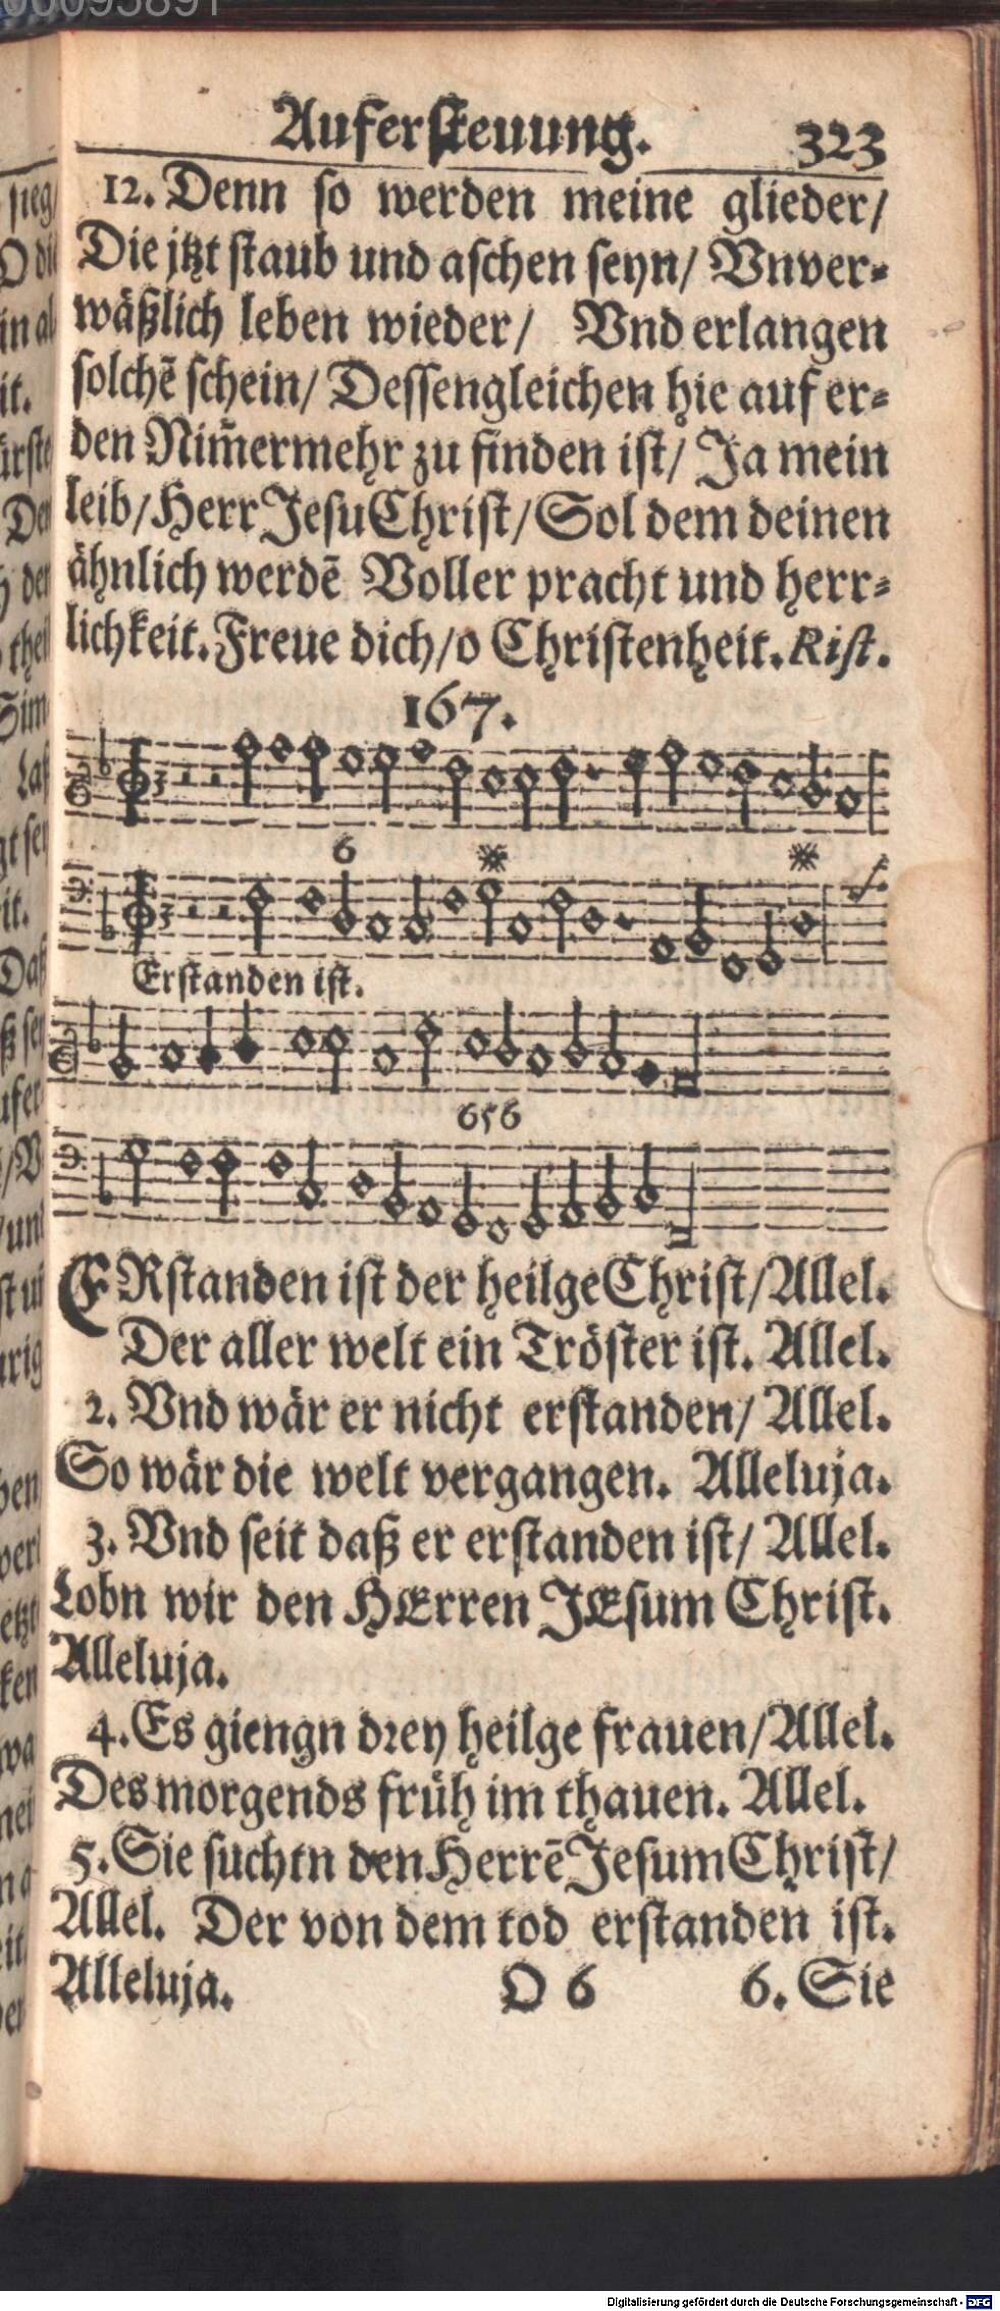 Auferſteuung. 323
12. Denn ſo werden meine glieder/
Die jtzt ſtaub und aſchen ſeyn/ Vnver-
wäßlich leben wieder/ Vnd erlangen
ſolchē ſchein/ Deſſengleichen hie auf er-
den Nim̄ermehr zu finden iſt/ Ja mein
leib/ Herr Jeſu Chriſt/ Sol dem deinen
ähnlich werdē Voller pracht und herr-
lichkeit. Freue dich/ o Chriſtenheit. Riſt.
167.
6
Erſtanden iſt.
656
ERſtanden iſt der heilge Chriſt/ Allel.
Der aller welt ein Tröſter iſt. Allel.
2. Vnd wär er nicht erſtanden/ Allel.
So wär die welt vergangen. Alleluja.
3. Vnd ſeit daß er erſtanden iſt/ Allel.
Lobn wir den HErren JEſum Chriſt.
Alleluja.
4. Es giengn drey heilge frauen/ Allel.
Des morgends früh im thauen. Allel.
5. Sie ſuchtn den Herrē Jeſum Chriſt/
Allel. Der von dem tod erſtanden iſt.
Alleluja. O 6 6. Sie
Digitalisierung gefördert durch die Deutsche Forschungsgemeinschaft - DFG